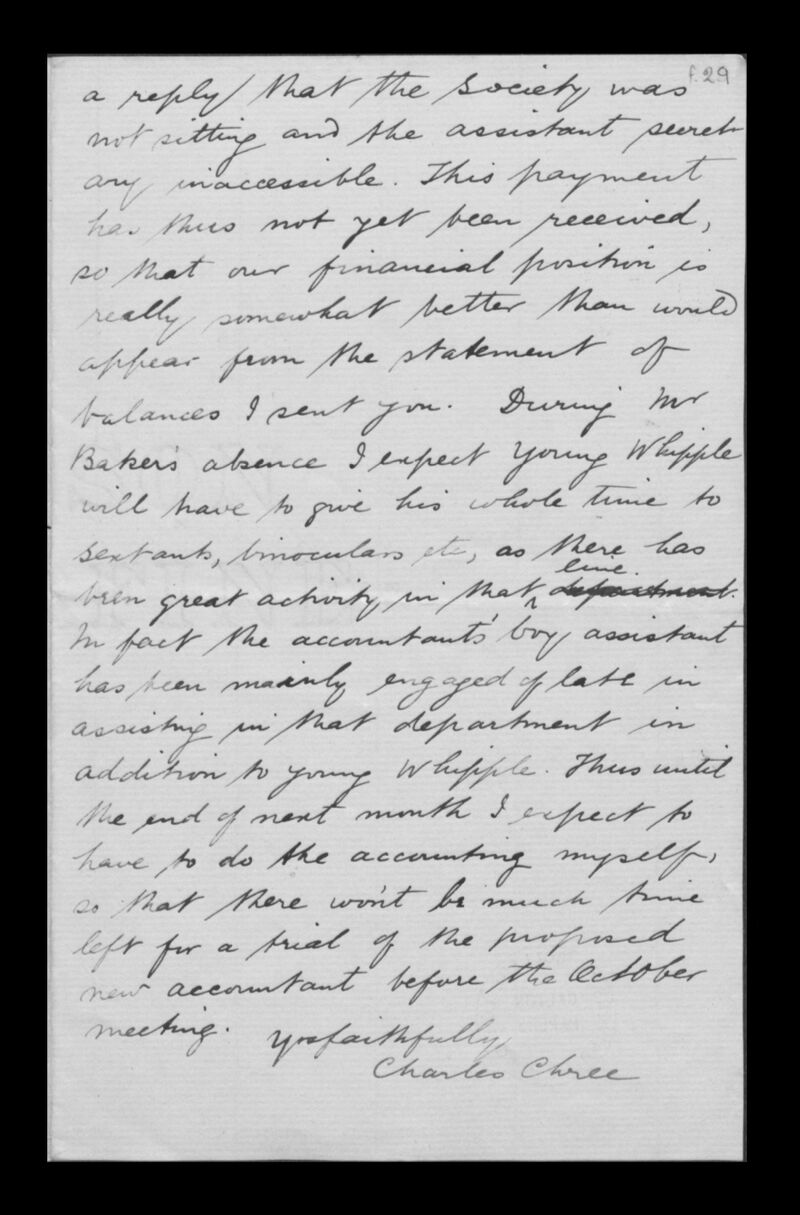 f.29
a reply that the Society was
not sitting and the assistant secret-
ary inaccessible. This payment
has thus not yet been received,
so that our financial position is
really somewhat better than would
appear from the statement of
balances I sent you. During Mr
Baker's absence I expect young Whipple
will have to give his whole time to
sextants, binoculars etc, as there has
line.
been great activity in that ^ department.
In fact the accountants' boy assistant
has been mainly engaged of late in
assisting in that department in
addition to young Whipple. Thus until
the end of next month I expect to
have to do the accounting myself,
so that there won't be much time
left for a trial of the proposed
new accountant before the October
meeting.
Yrs faithfully
Charles Chree